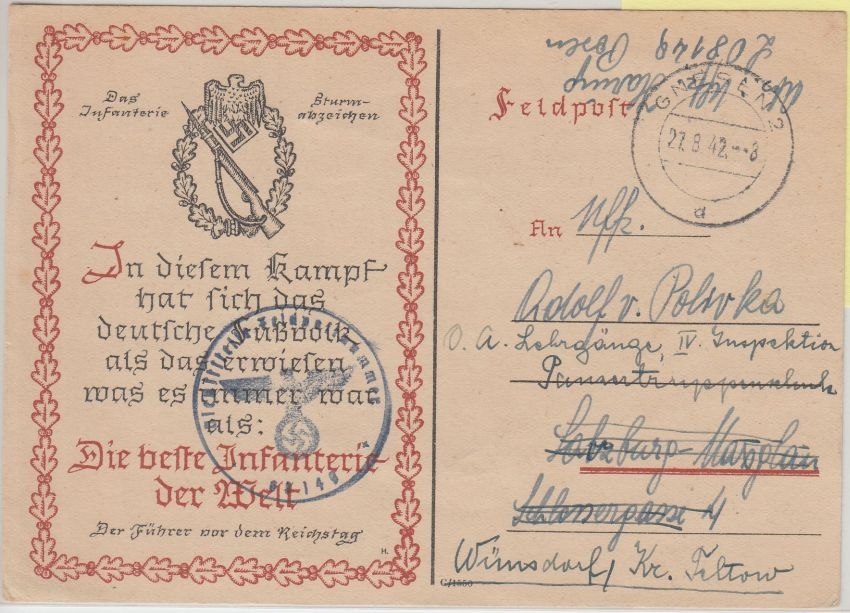 Das
Infanterie
Sturm-
abzeichen
In diesem Kampf
hat sich das
deutsche Fußvolk
als das erwiesen
was es immer war
als:
Die beste Infanterie
der Welt
Der Führer vor dem Reichstag
H.
Feldpost
27.8.42.--8
d
An Uffz.
Adolf v. Polivka
O. A. Lehrgänge, IV. Inspektion
Panzertruppenschule
Salzburg-Maxglan
Schlossergasse 4
Wünsdorf, Kr. Teltow
C/1550